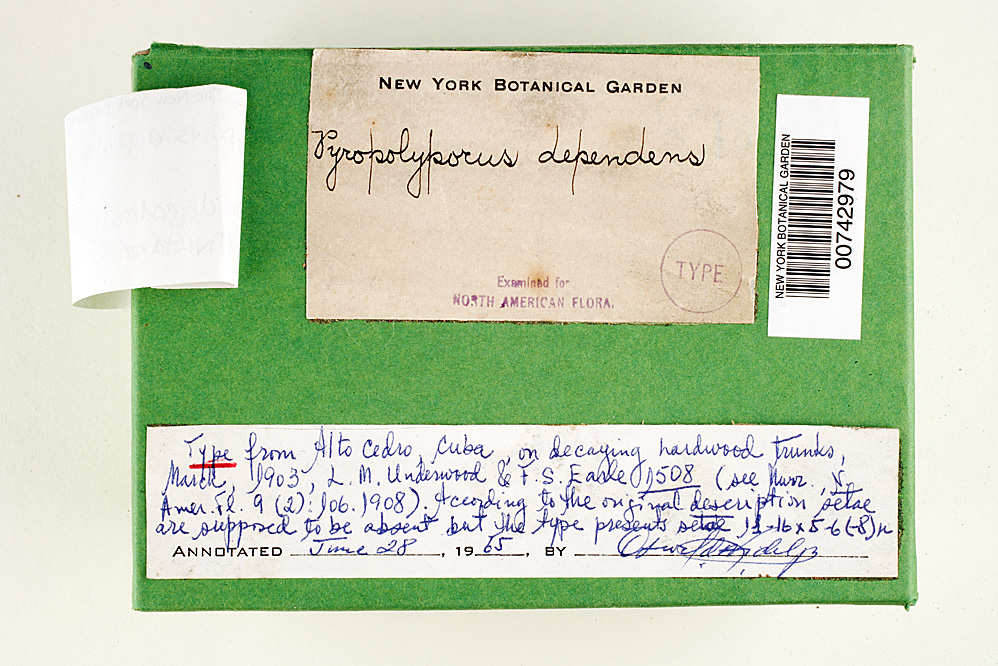 NEW YORK BOTANICAL GARDEN
Pyropolyporus dependens
TYPE
Examined for
NORTH AMERICAN FLORA.
NEW YORK BOTANICAL GARDEN
00742979
Type from Alto Cedro, Cuba, on decaying hardwood trunks,
March, 1903, L. M. Underwood & F. S. Earle 1508 (see Murr., N.
Amer. Fl. 9 (2): 106. 1908). According to the original description setae
are supposed to be absent but the type presents setae 13-16 x 5-6 (-8) µ
ANNOTATED June 28, 1965, BY